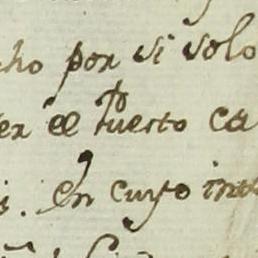 cho por si solo
er el Puerto ca
s. En cuyo int